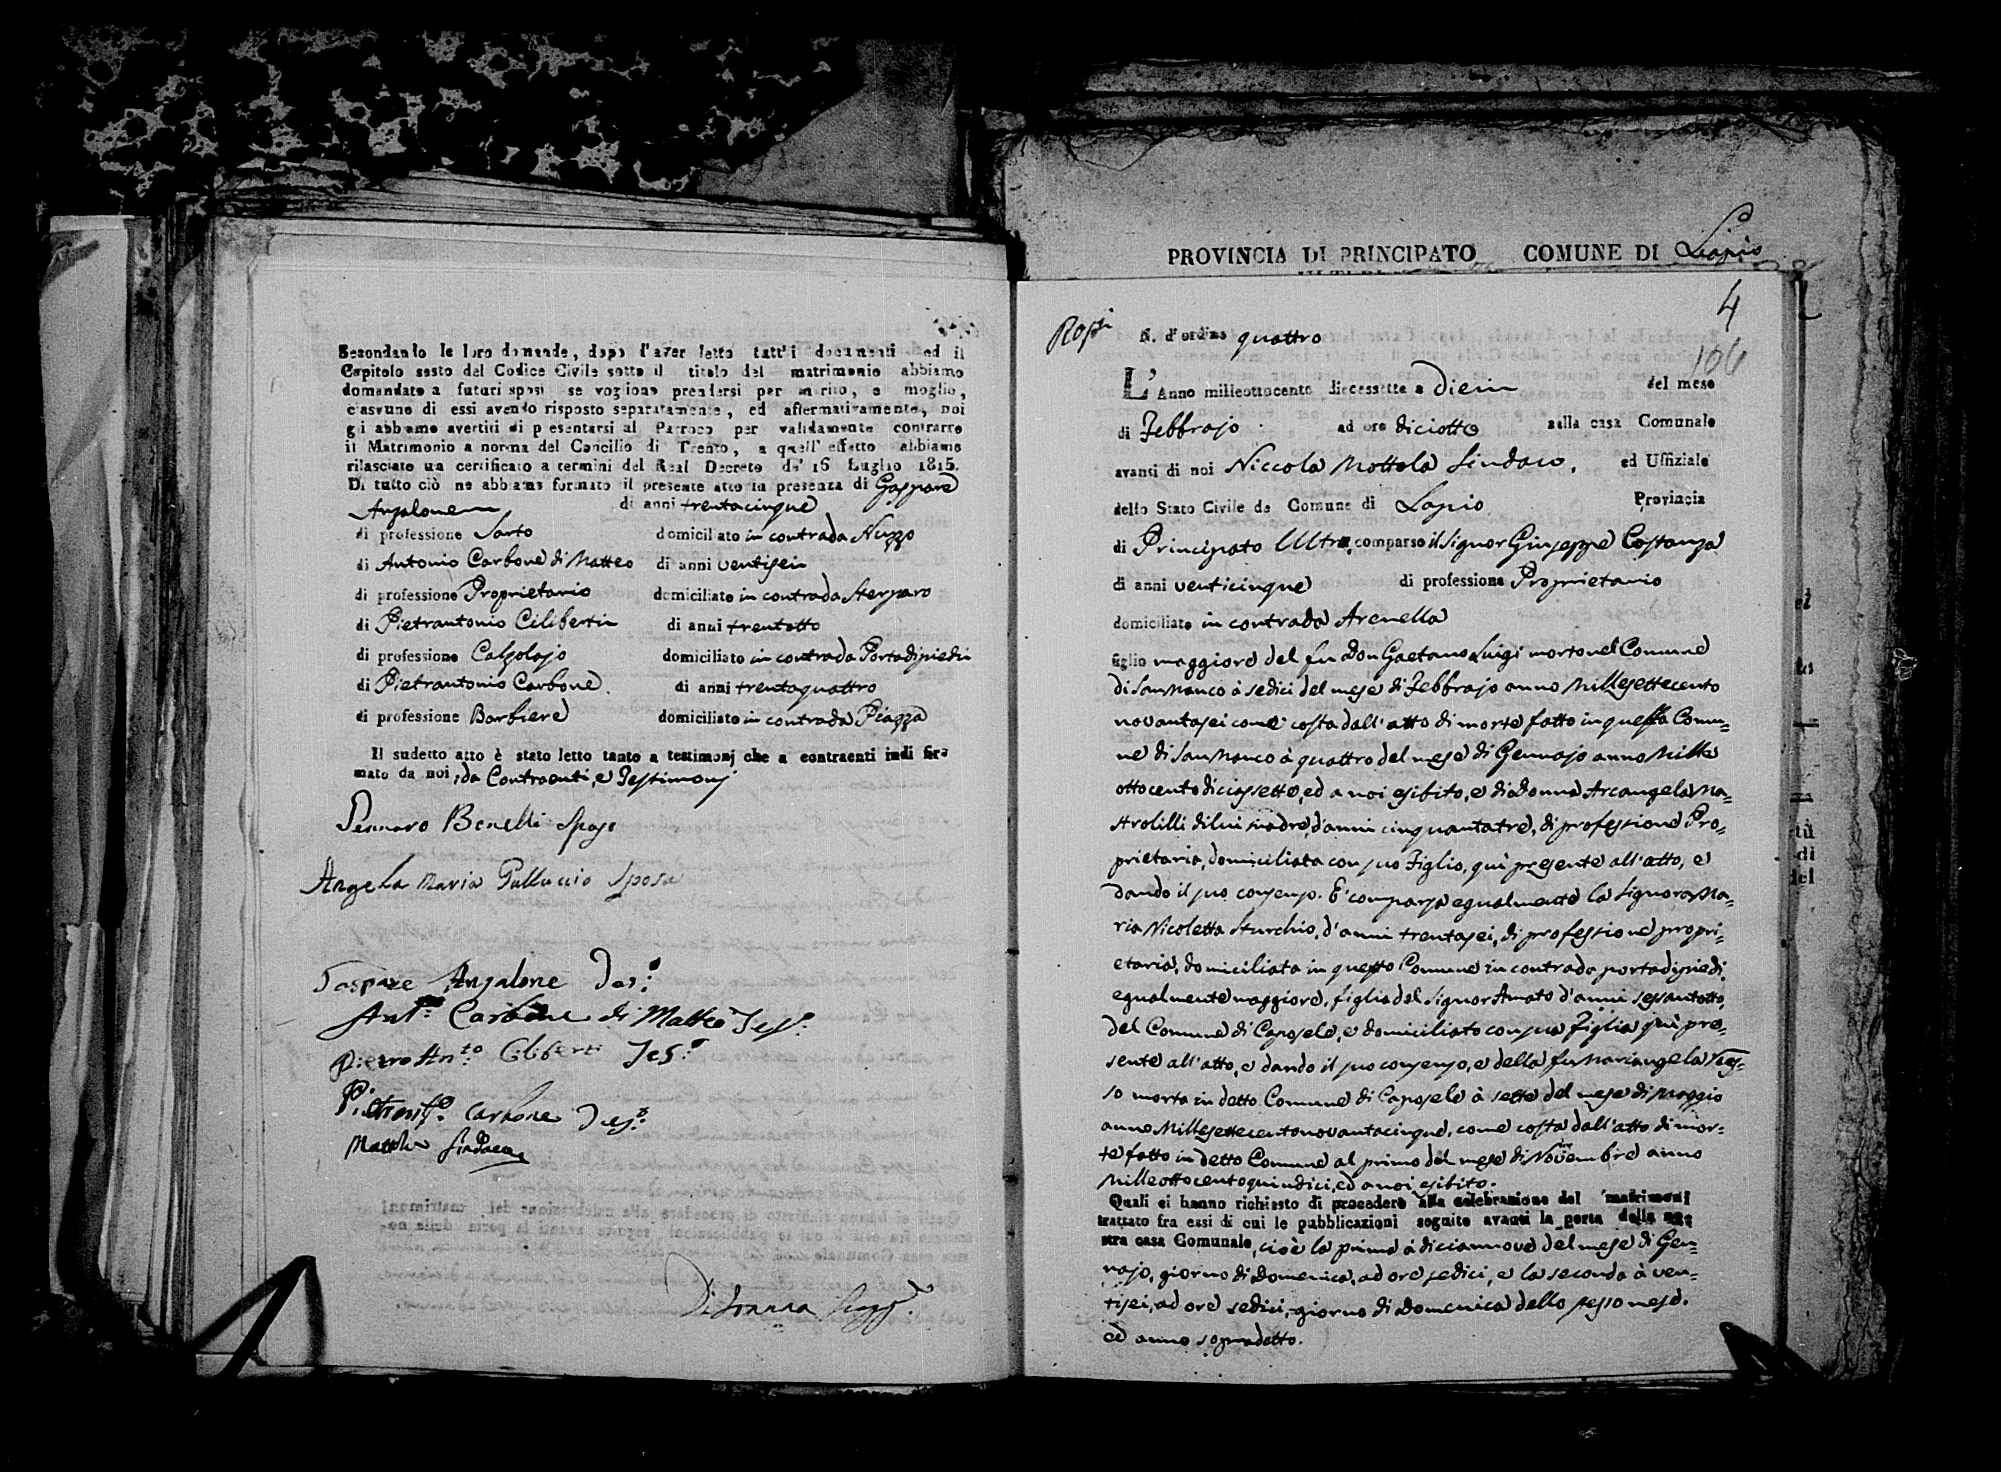 Secondando le loro domande, dopo l'aver letto tutt'i documenti ed il
Capitolo sesto del Codice Civile sotto il titolo del matrimonio abbiamo
domandato a futuri sposi se vogliono prendersi per marito, e moglie,
ciascuno di essi avendo risposto separatamente, ed affermativamente, noi
gli abbiamo avertiti di presentarsi al Parroco per validamente contrarre
il Matrimonio a norma del Concilio di Trento, a quell' effetto abbiamo
rilasciato un certificato a termini del Real Decreto de' 16 Luglio 1815.
Di tutto ciò ne abbiamo formato il presente atto in presenza di Gaspare
Anzalone di anni trentacinque
di professione Sarto domiciliato in contrada Nuzzo
di Antonio Carbone di Matteo di anni ventisei
di professione Proprietario domiciliato in contrada Sterparo
di Pietrantonio Ciliberti di anni trentotto
di professione Calzolajo domiciliato in contrada Portadipiedi
di Pietrantonio Carbone di anni trentaquattro
di professione Barbiere domiciliato in contrada Piazza
Il sudetto atto è stato letto tanto a testimonj che a contraenti indi fir-
mato da noi, da Contraenti, e Testimonj
Gennaro Benelli Sposo
Angela Maria Galluccio Sposa
Gaspare Anzalone Tes.º
Ant.º Carbone di Matteo Tes.º
Pietro An.to Ciliberti Tes.º
Carbone Tes.º
Mottola Sindaco
PROVINCIA DI PRINCIPATO COMUNE DI Lapio
4
106
N. d'ordine quattro
L'Anno milleottocento diecessette a Dieci del mese
di Febbrajo ad ore diciotto nella casa Comunale
avanti di noi Niccola Mottola Sindaco, ed Uffiziale
dello Stato Civile de Comune di Lapio Provincia
di Principato Ultra, comparso il Signor Giuseppe Costanza
di anni venticinque di professione Proprietario
domiciliato in contrada Arenella
figlio maggiore del fu Don Gaetano Luigi morto nel Comune
di San Manco à sedici del mese di Febbrajo anno Millesettecento
novantasei come costa dall'atto di morte fatto in questa Comu-
ne di San Manco à quattro del mese di Gennajo anno Mille
ottocentodiciassette, ed a noi esibito, e di Donna Arcangela Ma-
strolilli di lui madre, d'anni cinquantatre, di professione Pro-
prietaria, domiciliata con suo Figlio, quì presente all'atto, e
dando il suo consenso. E' comparsa egualmente la Signora Ma-
ria Nicoletta Sturchio, d'anni trentasei, di professione propri-
etaria, domiciliata in questo Comune in contrada portadipiedi,
egualmente maggiore, figlia del Signor Amato d'anni sessantotto,
del Comune di Caposele, e domiciliato con sua Figlia quì pre-
sente all'atto, e dando il suo consenso, e della fu Mariangela
so morta in detto Comune di Caposele à sette del mese di Maggio
anno Millesettecentonovantacinque, come costa dall'atto di mor-
te fatto in detto Comune al primo del mese di Novembre anno
Milleottocentoquindici, ed a noi esibito.
Quali ci hanno richiesto di procedere alla celebrazione del matrimoni
trattato fra essi di cui le pubblicazioni seguite avanti la porta della no-
stra casa Comunale, cioè la prima à diciannove del mese di Gen-
najo, giorno di Domenica, ad ore sedici, e la seconda à ven-
tisei, ad ore sedici, giorno di Domenica dello stesso mese,
ed anno sopradetto.